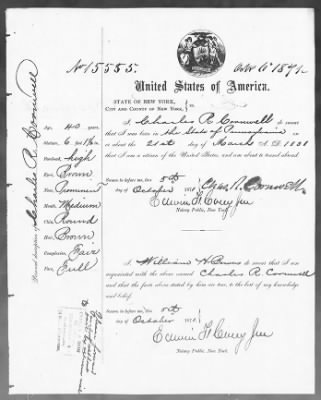 No 15555.
Octr 6 1871.
United States of America.
STATE OF NEW YORK,
CITY AND COUNTY OF NEW YORK,
I, Charles R. Cromwell do swear
that I was born in the State of Pennsylvania on
or about the 21st day of March A. D. 1831
that I am a citizen of the United States, and am about to travel abroad.
Sworn to before me, this 5th
day of October 187
Chas R. Cromwell
Edwin F. Corey Jun
Notary Public, New York.
I, William H. do swear that I am
acquainted with the above named Charles R. Cromwell
and that the facts above stated by him are true, to the best of my knowledge
and belief.
Sworn to before me, this 5th
day of October 187
Edwin F. Corey Jun
Notary Public, New York.
Personal description of Charles R. Cromwell
Age, 40 years.
Stature, 6 feet
Forehead, high
Eyes, Brown
Nose, Common
Mouth, Medium
Chin, Round
Hair, Brown
Complexion, Fair
Face, Full